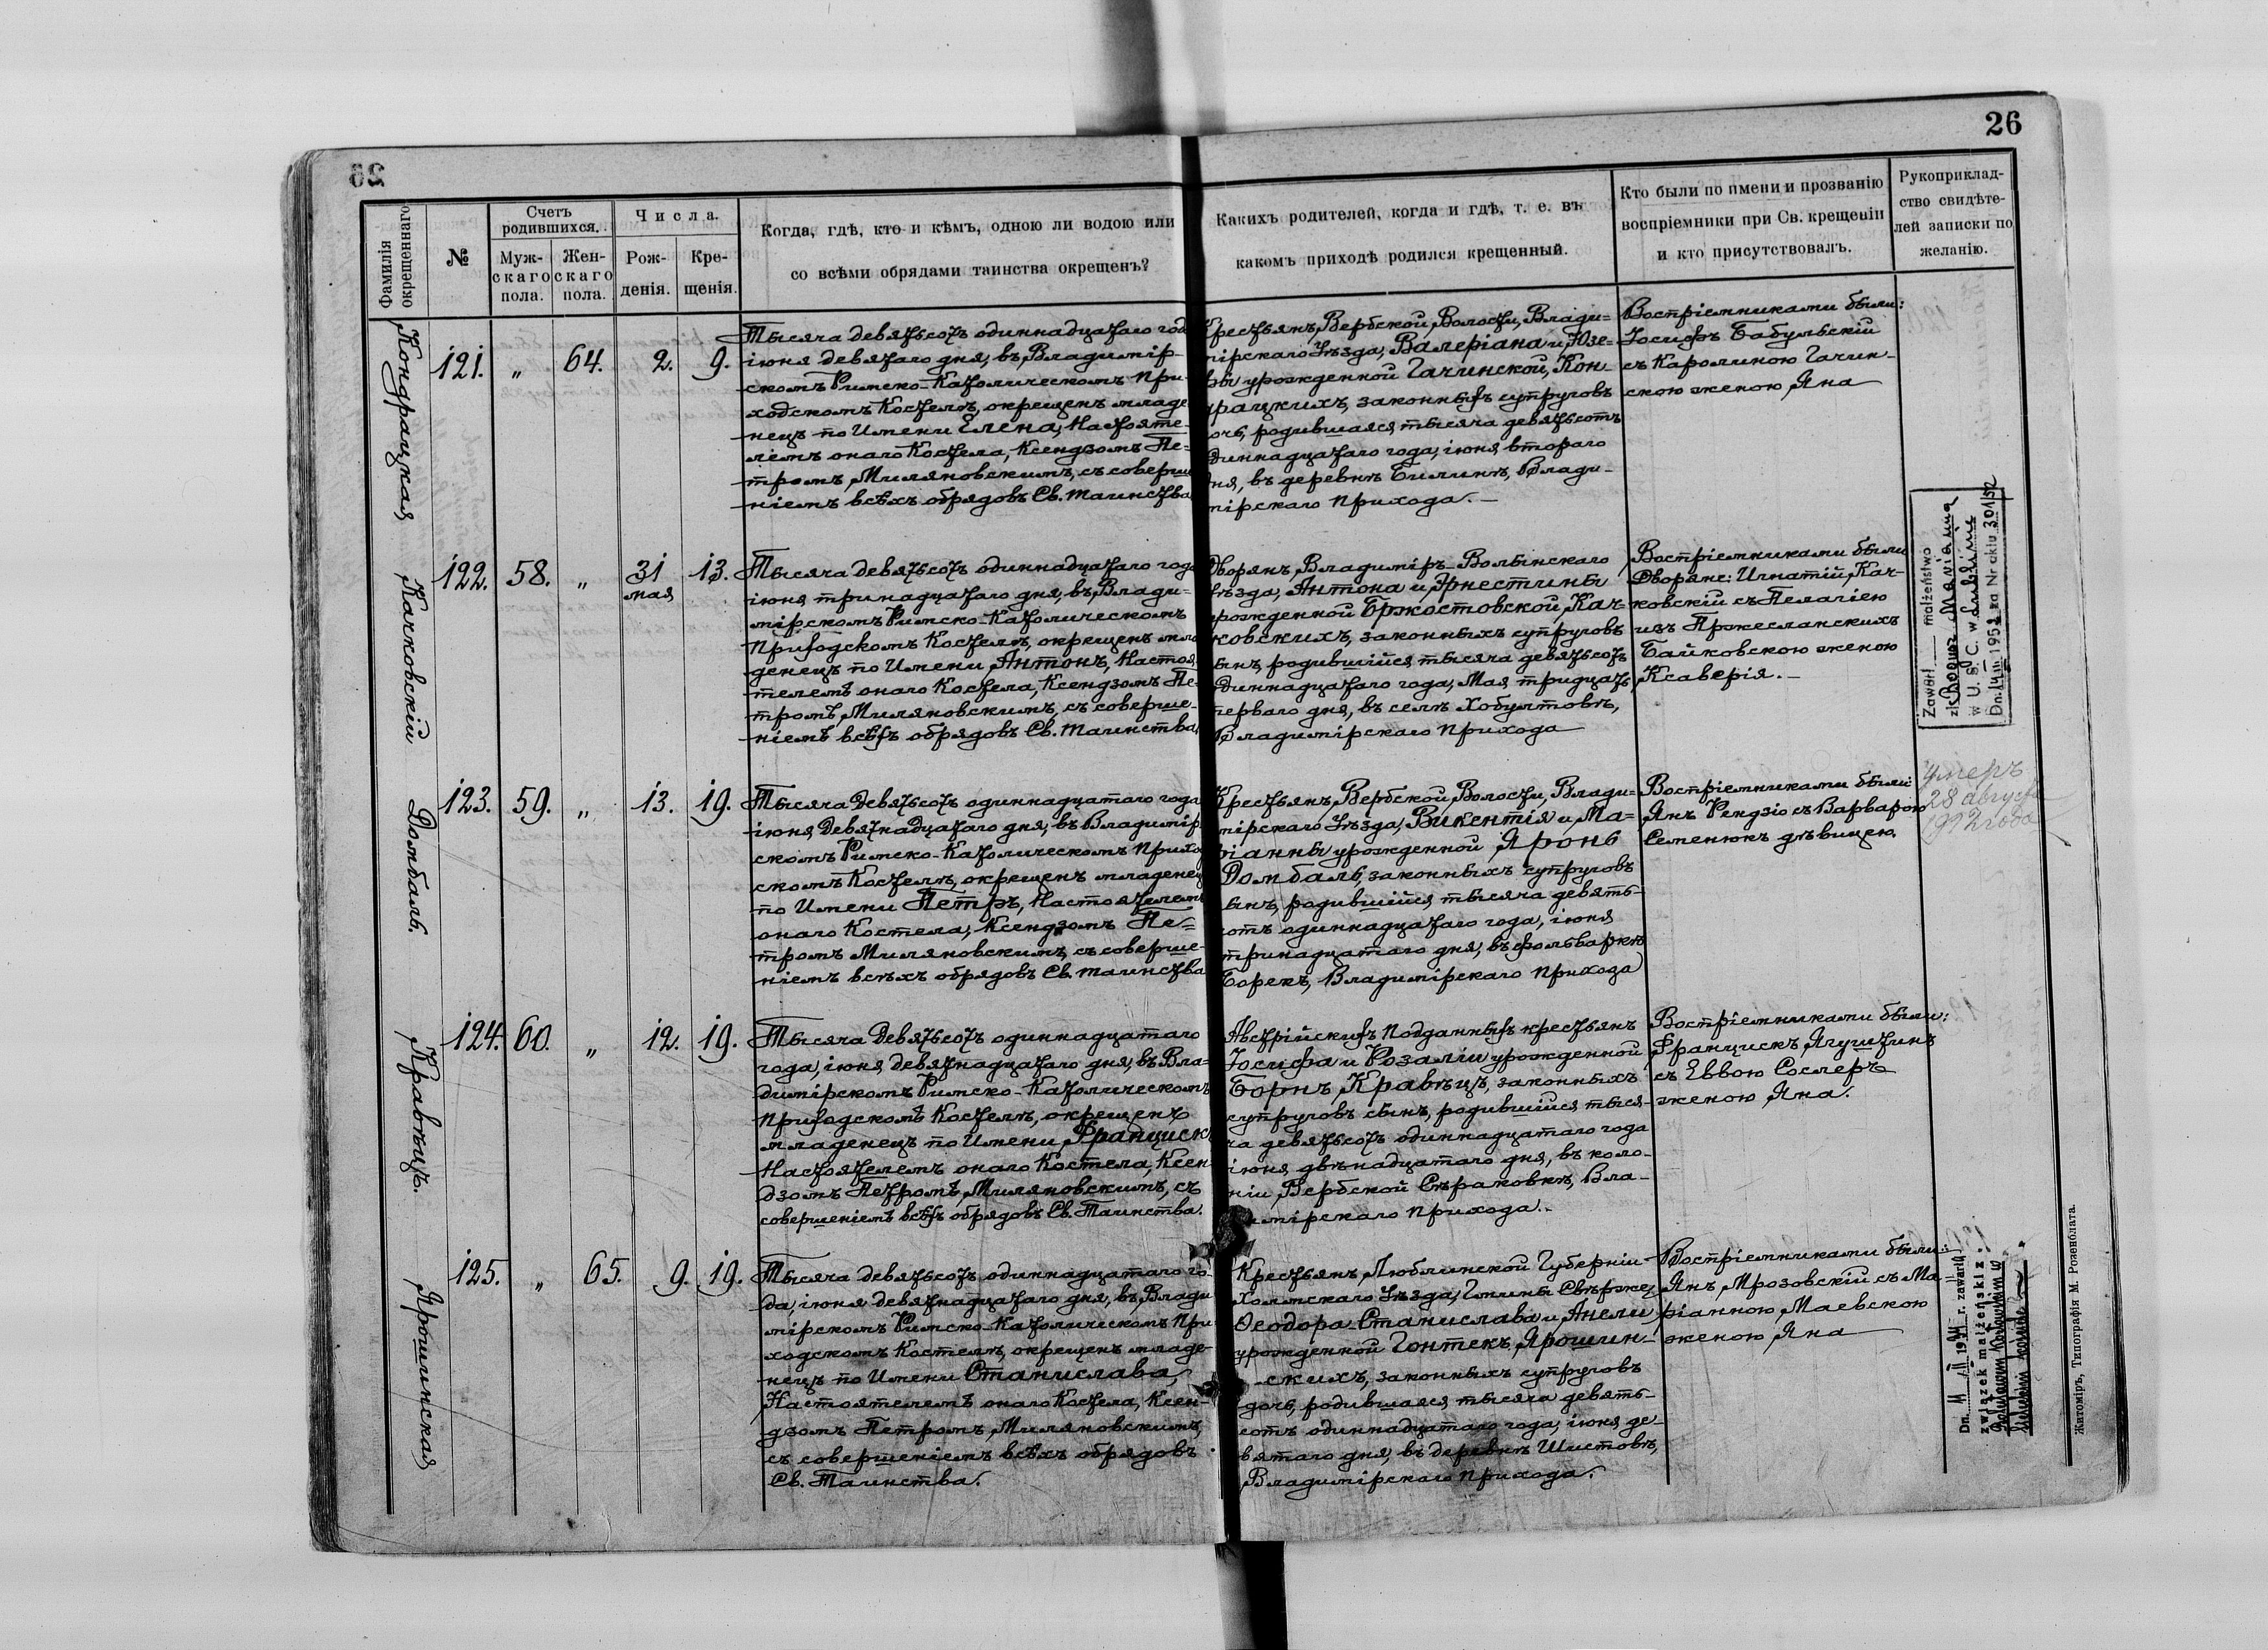 26
Фамилія окрещеннаго
№
Счетъ родившихся.
Мужскаго пола.
Женскаго пола.
Числа.
Рожденія.
Крещенія.
Когда, гдѣ, кто и кѣмъ, одною ли водою или
со всѣми обрядами таинства окрещенъ?
Какихъ родителей, когда и гдѣ, т. е. въ
какомъ приходѣ родился крещенный.
Кто были по имени и прозванію
воспріемники при Св. крещеніи
и кто присутствовалъ.
Рукоприклад-
ство свидѣте-
лей записки по
желанію.
Кондрацкая
121. " 64. 2. 9.
Тысяча девятьсотъ одиннадцатаго год
іюня девятаго дня, въ Владимір-
скомъ Римско-Католическомъ При-
ходскомъ Костелѣ, окрещенъ младе
нецъ по Имени Елена, Настояте-
лемъ онаго Костела, Ксендзомъ Пе-
тромъ Миляновскимъ, съ соверше
ніемъ всѣхъ обрядовъ Св. таинства
Крестьянъ, Вербской Волости, Влади-
мірскаго Уѣзда, Валеріана и Юзе-
фы урожденной Гачинской, Кон-
драцкихъ, законныхъ супруговъ
дочь, родившаяся тысяча девятьсотъ
одиннадцатаго года, іюня втораго
дня, въ деревнѣ Билинѣ, Влади-
мірскаго прихода.
Воспріемниками были:
Іосифъ Бабульскій
съ Каролиною Гачин-
скою женою Яна
Качковскій
122. 58. " 31 мая 13.
Тысяча девятьсотъ одиннадцатаго года
іюня тринадцатаго дня, въ Влади-
мірскомъ Римско-Католическомъ
Приходскомъ Костелѣ, окрещенъ мла
денецъ по Имени Антонъ, Настоя-
телемъ онаго Костела, Ксендзомъ Пе-
тромъ Миляновскимъ, съ соверше-
ніемъ всѣхъ обрядовъ Св. таинства
Дворянъ, Владиміръ-Волынскаго
уѣзда, Антона и Эрнестины
урожденной Бржостовской, Кач-
ковскихъ, законныхъ супруговъ
сынъ, родившійся тысяча девятьсотъ
одиннадцатаго года, Мая тридцать
перваго дня, въ селѣ Хобултовѣ,
Владимірскаго прихода
Воспріемниками были
Дворяне: Игнатій Кач-
ковскій съ Пелагіею
изъ Пржесланскихъ
Байковскою женою
Ксаверія.
Zawarł małżeństwo
w U. S. C. w Lublinie
za Nr aktu 301/52
Домбаль.
123. 59. " 13. 19.
Тысяча девятьсотъ одиннадцатаго года
іюня девятнадцатаго дня, въ Владимір-
скомъ Римско-Католическомъ Приход
скомъ Костелѣ, окрещенъ младенец
по Имени Петръ, Настоятелемъ
онаго Костела, Ксендзомъ Пе-
тромъ Миляновскимъ, съ соверше-
ніемъ всѣхъ обрядовъ Св. таинства
Крестьянъ, Вербской Волости, Влади-
мірскаго Уѣзда, Викентія и Ма-
ріанны урожденной Яронь
Домбаль, законныхъ супруговъ
сынъ, родившійся тысяча девять-
сотъ одиннадцатаго года, іюня
тринадцатаго дня, въ фольваркѣ
Борекъ, Владимірскаго прихода
Воспріемниками были:
Янъ Рендзіо съ Варварою
Семенюкъ дѣвицею.
Умеръ
28 августа
1912 года
Кравѣцъ.
124. 60. " 12. 19.
Тысяча девятьсотъ одиннадцатаго
года, іюня девятнадцатаго дня, въ Вла-
димірскомъ Римско-Католическомъ
Приходскомъ Костелѣ, окрещенъ
младенецъ по Имени Францискъ
Настоятелемъ онаго Костела, Ксен-
дзомъ Петромъ Миляновскимъ, съ
совершеніемъ всѣхъ обрядовъ Св. Таинства.
Австрійскихъ подданныхъ крестьянъ
Іосифа и Розаліи урожденной
Борнъ, Кравѣцъ, законныхъ
супруговъ сынъ, родившійся тыся-
ча девятьсотъ одиннадцатаго года
іюня двѣнадцатаго дня, въ коло-
ніи Вербской Сѣраковкѣ, Вла-
димірскаго прихода.
Воспріемниками были:
Францискъ Ягуштинъ
съ Еввою Сослеръ
женою Яна.
Ярошинская
125. " 65. 9. 19.
Тысяча девятьсотъ одиннадцатаго го-
да, іюня девятнадцатаго дня, въ Влади-
мірскомъ Римско-Католическомъ При-
ходскомъ Костелѣ, окрещенъ младе-
нецъ по Имени Станислава,
Настоятелемъ онаго Костела, Ксен-
дзомъ Петромъ Миляновскимъ,
съ совершеніемъ всѣхъ обрядовъ
Св. Таинства.
Крестьянъ Люблинской Губерніи
Холмскаго Уѣзда, Гмины Свѣрже,
Ѳеодора-Станислава и Анели
урожденной Гонтекъ, Ярошин-
скихъ, законныхъ супруговъ
дочь, родившаяся тысяча девять-
сотъ одиннадцатаго года, іюня де-
вятаго дня, въ деревнѣ Шистовѣ,
Владимірскаго прихода.
Воспріемниками были:
Янъ Мрозовскій съ Ма-
ріанною Маевскою
женою Яна
r. zawarła
związek małżeński z
Житоміръ, Типографія М. Розенблата.